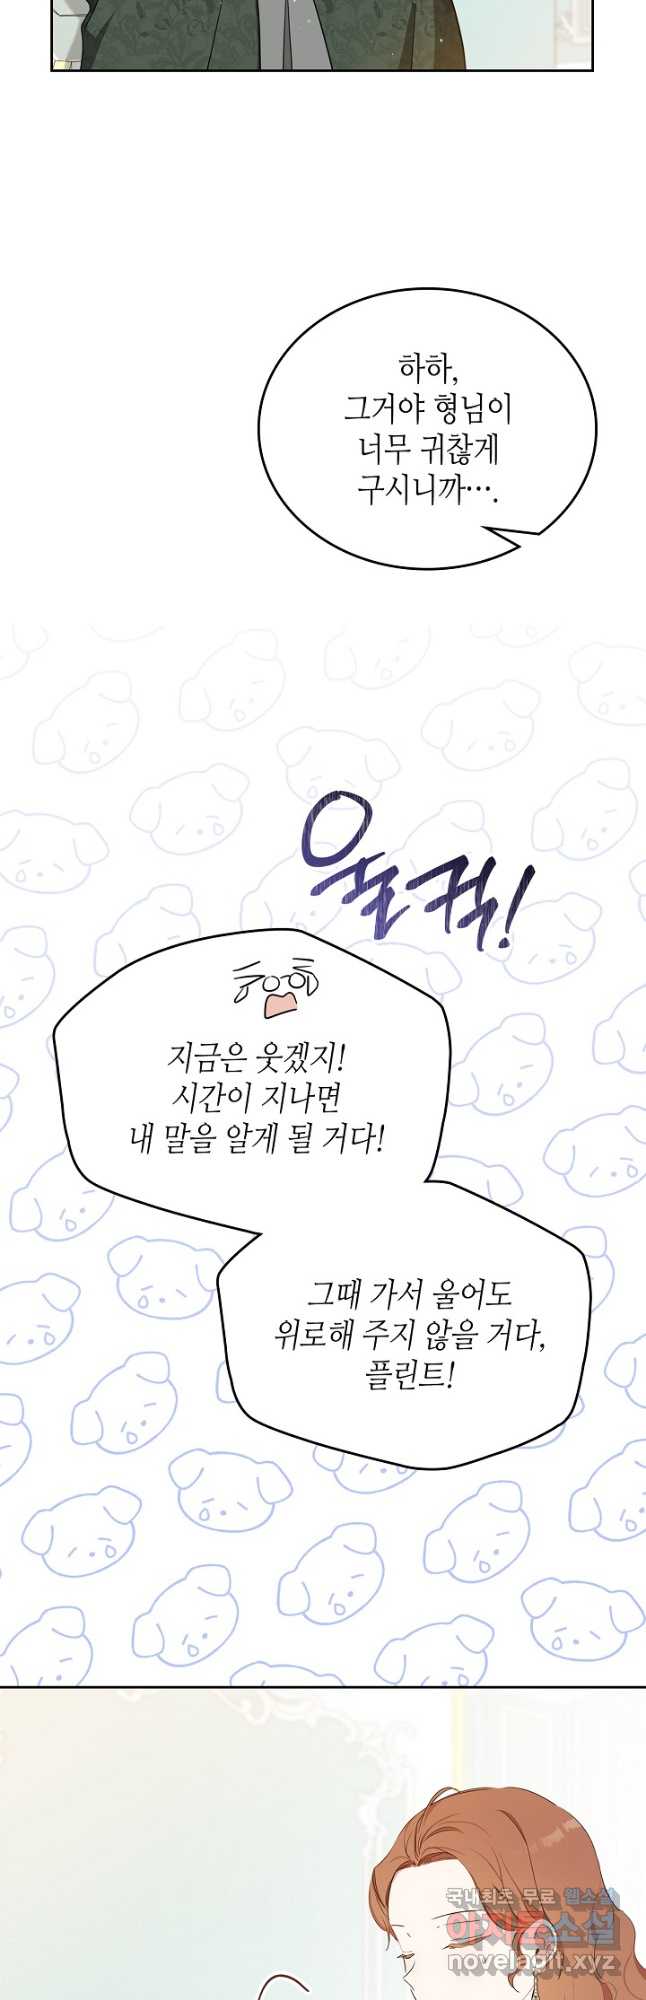 하하,
그거야 형님이
너무 귀찮게
구시니까….
울컥!
지금은 웃겠지!
시간이 지나면
내 말을 알게 될 거다!
그때 가서 울어도
위로해 주지 않을 거다,
플린트!
국내최초 무료 웹소설
아지툰소설
novelagit.xyz